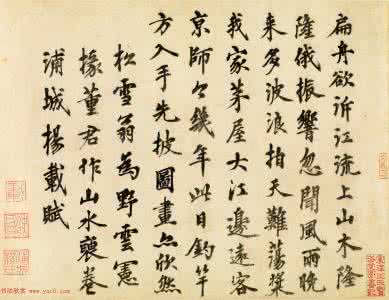 扁舟欲泝江流上山木隆
隆俄振響忽聞風雨晚
来多波浪拍天難蕩槳
我家茅屋大江邊遠客
京師今幾年此日釣竿
方入手先披圖畫亦欣然
松雪翁為野雲憲
掾董君作山水裹卷
浦城楊載賦
书法欣赏